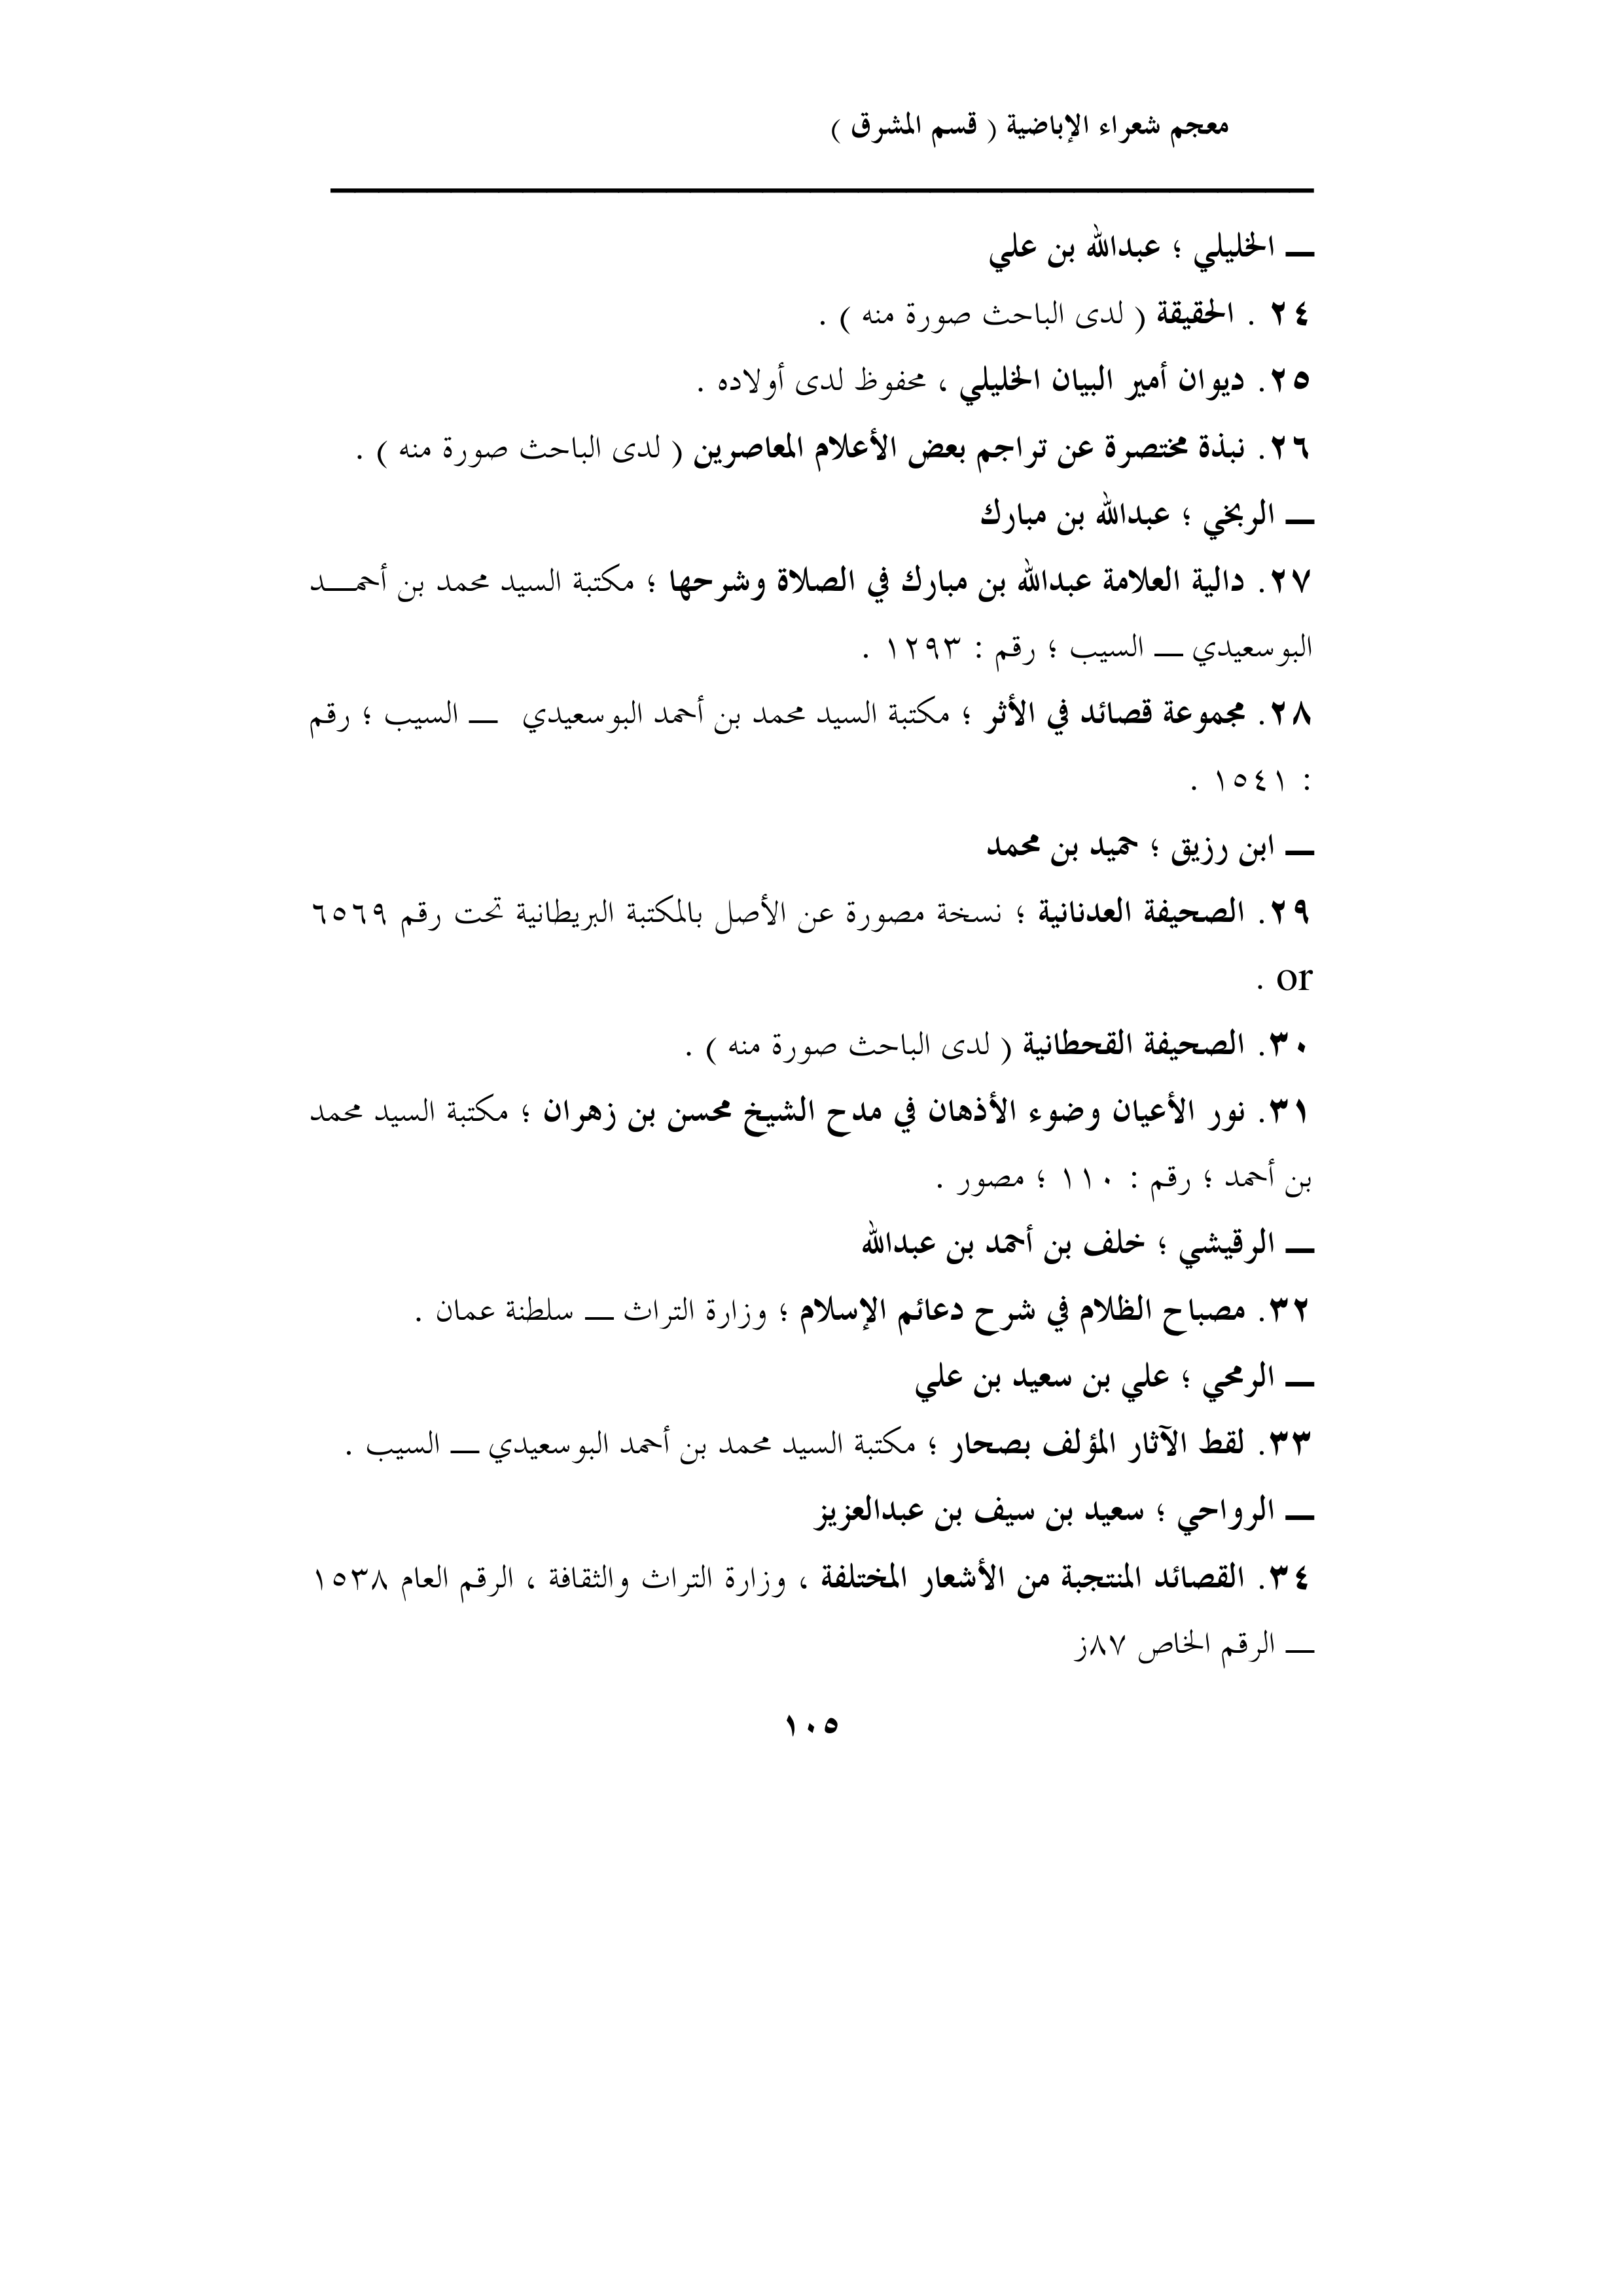 معجم شعراء الإباضية ( قسم المشرق )
ــ الخليلي ؛ عبدالله بن علي
٢٤ . الحقيقة ( لدى الباحث صورة منه ) .
٢٥. ديوان أمير البيان الخليلي ، محفوظ لدى أولاده .
٢٦. نبذة مختصرة عن تراجم بعض الأعلام المعاصرين ( لدى الباحث صورة منه ) .
ــ الربخي ؛ عبدالله بن مبارك
٢٧. دالية العلامة عبدالله بن مبارك في الصلاة وشرحها ؛ مكتبة السيد محمد بن أحمـــد
البوسعيدي ــ السيب ؛ رقم : ١٢٩٣ .
٢٨. مجموعة قصائد في الأثر ؛ مكتبة السيد محمد بن أحمد البوسعيدي ــ السيب ؛ رقم
: ١٥٤١ .
ــ ابن رزيق ؛ حميد بن محمد
٢٩. الصحيفة العدنانية ؛ نسخة مصورة عن الأصل بالمكتبة البريطانية تحت رقم ٦٥٦٩
or .
٣٠. الصحيفة القحطانية ( لدى الباحث صورة منه ) .
٣١. نور الأعيان وضوء الأذهان في مدح الشيخ محسن بن زهران ؛ مكتبة السيد محمد
بن أحمد ؛ رقم : ١١٠ ؛ مصور .
ــ الرقيشي ؛ خلف بن أحمد بن عبدالله
٣٢. مصباح الظلام في شرح دعائم الإسلام ؛ وزارة التراث ــ سلطنة عمان .
ــ الرمحي ؛ علي بن سعيد بن علي
٣٣. لقط الآثار المؤلف بصحار ؛ مكتبة السيد محمد بن أحمد البوسعيدي ــ السيب .
ــ الرواحي ؛ سعيد بن سيف بن عبدالعزيز
٣٤. القصائد المنتجبة من الأشعار المختلفة ، وزارة التراث والثقافة ، الرقم العام ١٥٣٨
ــ الرقم الخاص ٨٧ز
١٠٥